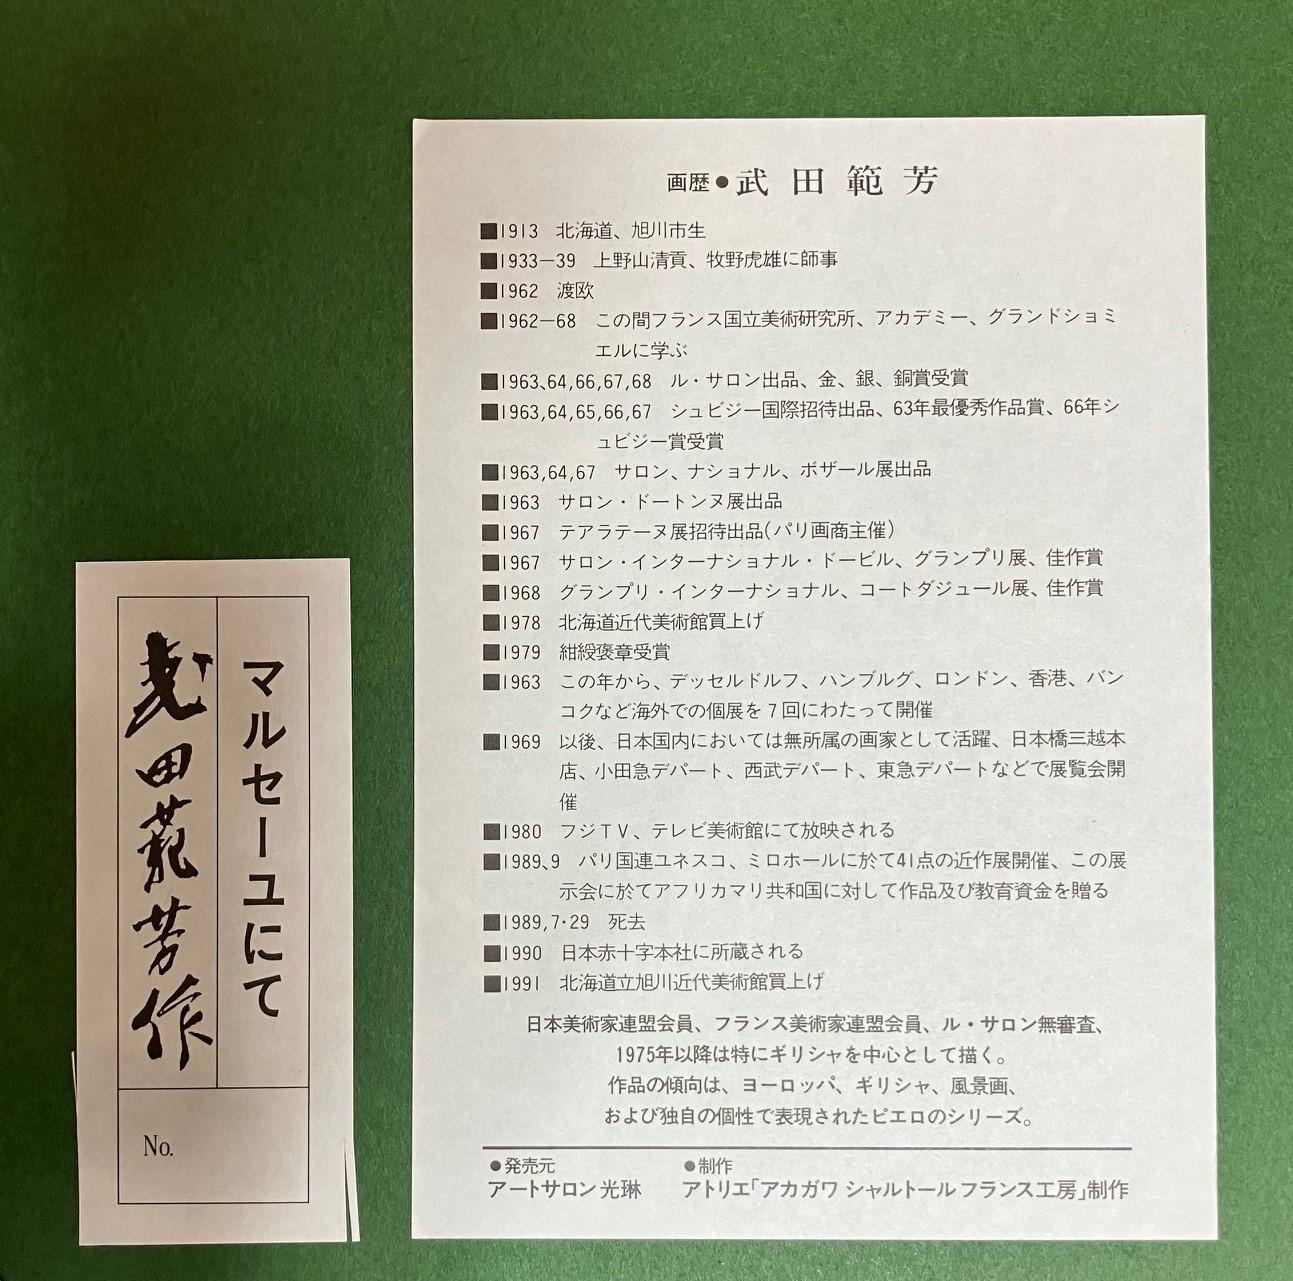 画歴●武田範芳
■1913 北海道、旭川市生
■1933−39 上野山清貢、牧野虎雄に師事
■1962 渡欧
■1962−68 この間フランス国立美術研究所、アカデミー、グランドショミ
エルに学ぶ
■1963、64,66,67,68 ル・サロン出品、金、銀、銅賞受賞
■1963,64,65,66,67 シュビジー国際招待出品、63年最優秀作品賞、66年シ
ュビジー賞受賞
■1963,64,67 サロン、ナショナル、ボザール展出品
■1963 サロン・ドートンヌ展出品
■1967 テアラテーヌ展招待出品(パリ画商主催)
■1967 サロン・インターナショナル・ドービル、グランプリ展、佳作賞
■1968 グランプリ・インターナショナル、コートダジュール展、佳作賞
■1978 北海道近代美術館買上げ
■1979 紺綬褒章受賞
■1963 この年から、デッセルドルフ、ハンブルグ、ロンドン、香港、バン
コクなど海外での個展を7回にわたって開催
■1969 以後、日本国内においては無所属の画家として活躍、日本橋三越本
店、小田急デパート、西武デパート、東急デパートなどで展覧会開
催
■1980 フジTV、テレビ美術館にて放映される
■1989、9 パリ国連ユネスコ、ミロホールに於て41点の近作展開催、この展
示会に於てアフリカマリ共和国に対して作品及び教育資金を贈る
■1989,7・29 死去
■1990 日本赤十字本社に所蔵される
■1991 北海道立旭川近代美術館買上げ
日本美術家連盟会員、フランス美術家連盟会員、ル・サロン無審査、
1975年以降は特にギリシャを中心として描く。
作品の傾向は、ヨーロッパ、ギリシャ、風景画、
および独自の個性で表現されたピエロのシリーズ。
●発売元
アートサロン光琳
●制作
アトリエ「アカガワ シャルトール フランス工房」制作
マルセーユにて
武田範芳作
No.